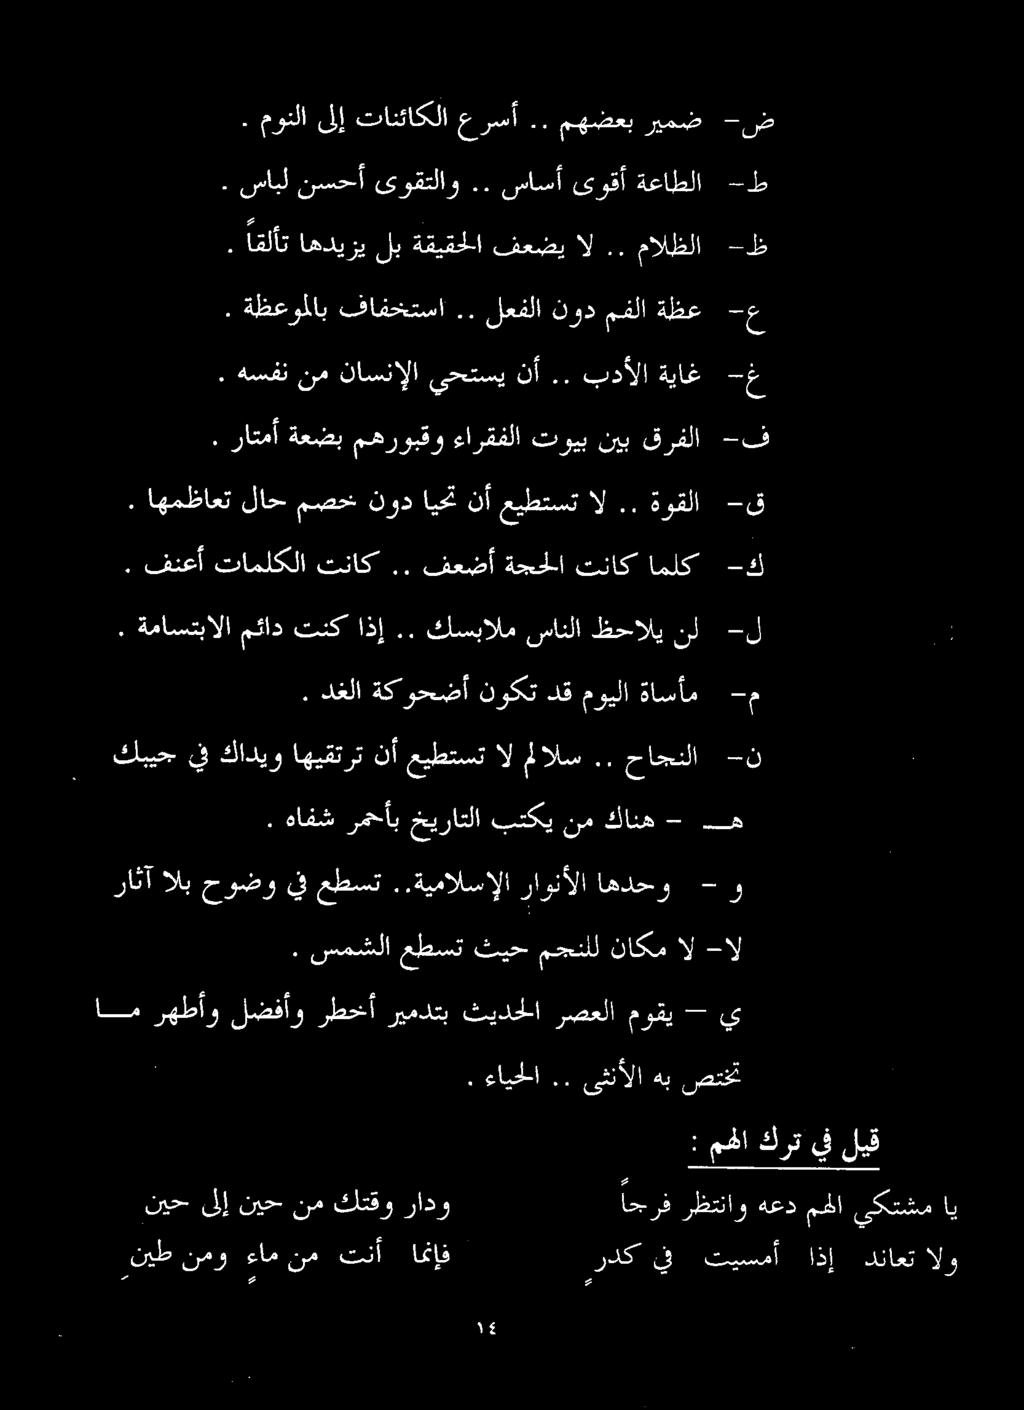 ض- ضمير بعضهم .. أسرع الكائنات إلى النوم .
ط- الطاعة أقوى أساس .. والتقوى أحسن لباس .
ظ- الظلام .. لا يضعف الحقيقة بل يزيدها تألقاً .
ع- عظة الفم دون الفعل .. استخفاف بالموعظة .
غ- غاية الأدب .. أن يستحي الإنسان من نفسه .
ف- الفرق بين بيوت الفقراء وقبورهم بضعة أمتار .
ق- القوة .. لا تستطيع أن تحيا دون خصم حال تعاظمها .
ك- كلما كانت الحجة أضعف .. كانت الكلمات أعنف .
ل- لن يلاحظ الناس ملابسك .. إذا كنت دائم الابتسامة .
م- مأساة اليوم قد تكون أضحوكة الغد .
ن- النجاح .. سلالم لا تستطيع أن ترتقيها ويداك في جيبك
هـ - هناك من يكتب التاريخ بأحمر شفاه .
و - وحدها الأنوار الإسلامية.. تسطع في وضوح بلا آثار
لا- لا مكان للنجم حيث تسطع الشمس .
ي – يقوم العصر الحديث بتدمير أخطر وأفضل وأطهر مـــا
تختص به الأنثى .. الحياء .
قيل في ترك الهم :
يا مشتكي الهم دعه وانتظر فرجاً ودار وقتك من حين إلى حين
ولا تعاند إذا أمسيت في كدرٍ فإنما أنت من ماءٍ ومن طينِ
١٤